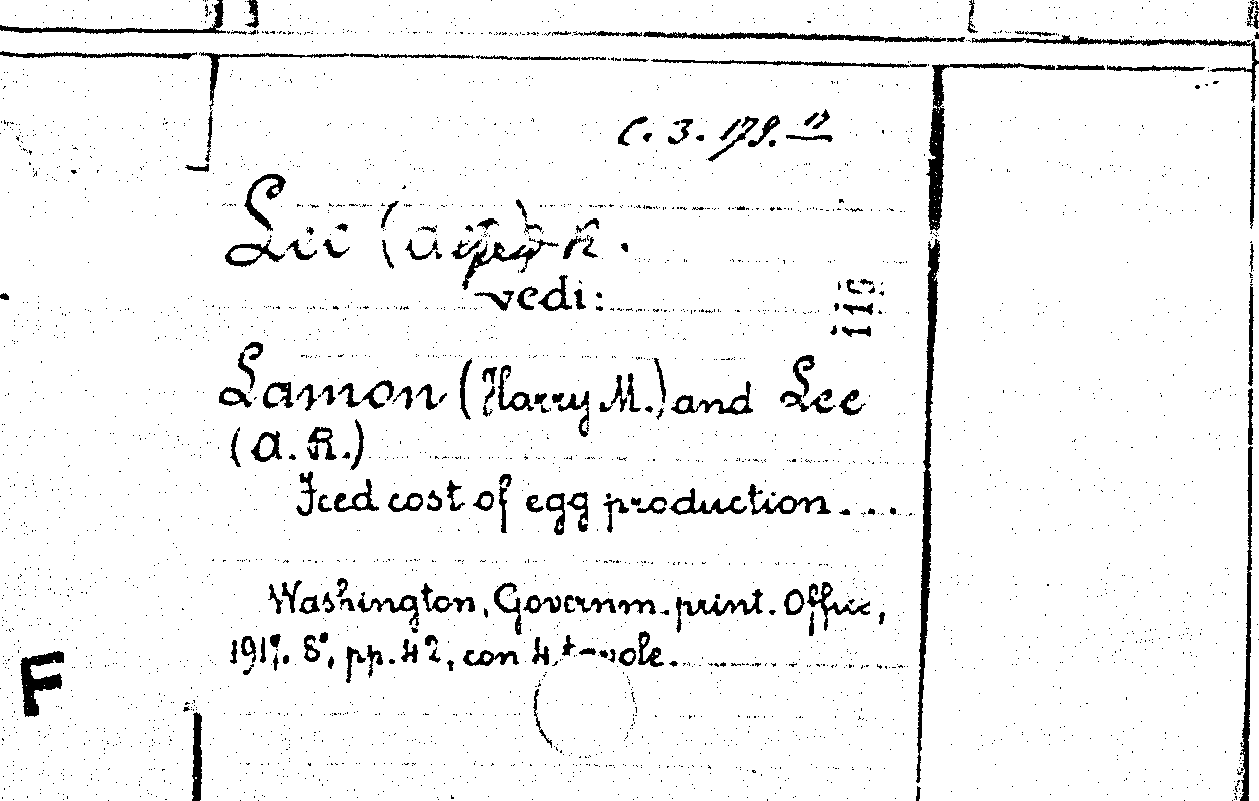 C. 3. 179. 17
Lee (A
vedi:
Lamon (Harry M.) and Lee
(A. R.)
Feed cost of egg production...
Washington, Governm. print. Office,
1917. 8°, pp. 42, con 4 tavole.
F